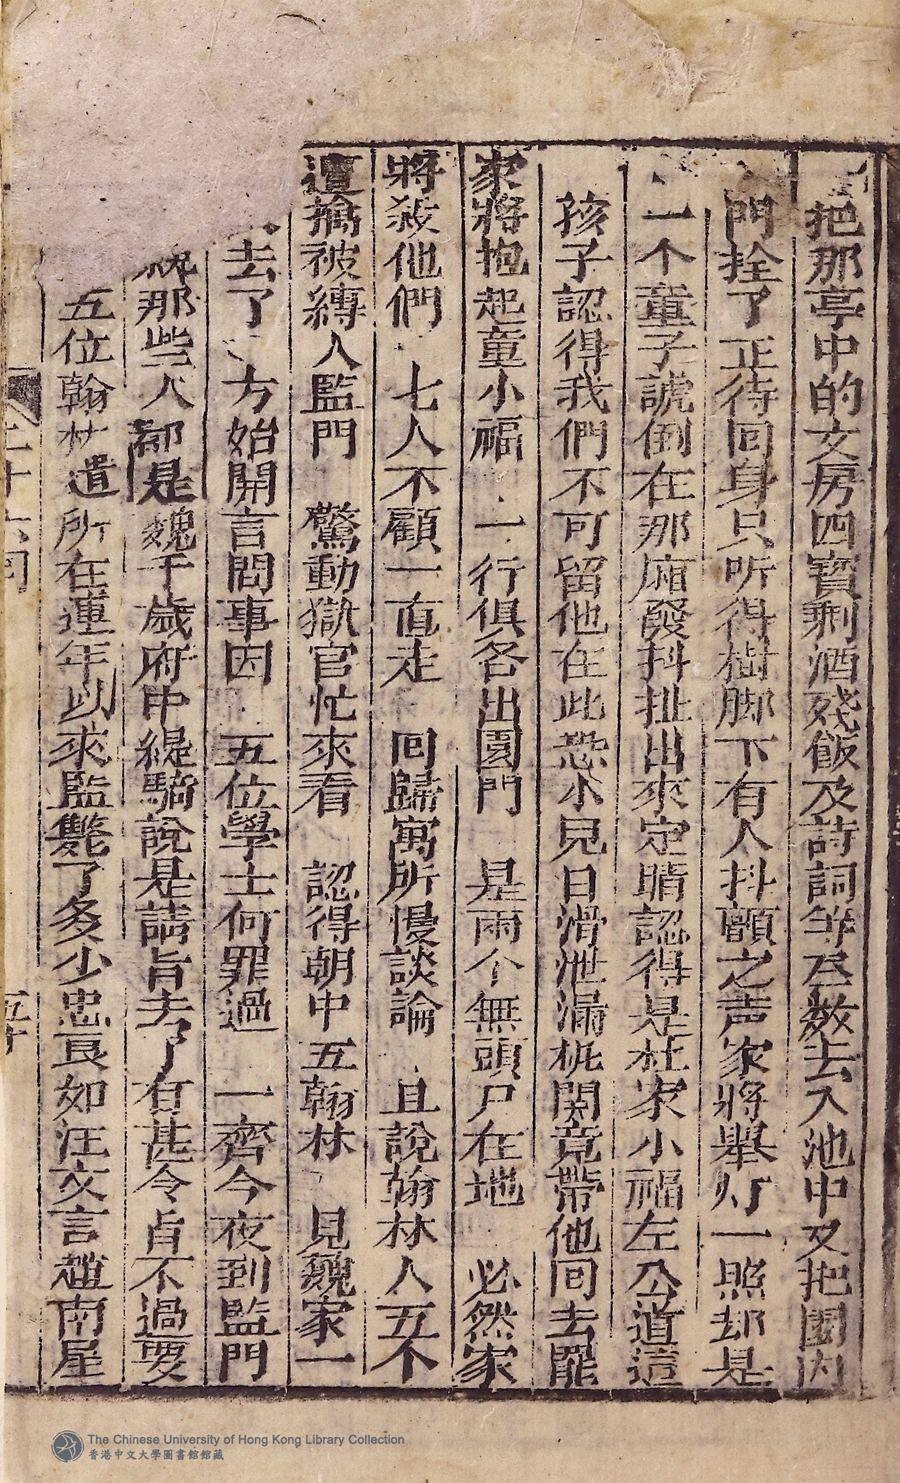 把那亭中的文房四寳剩酒殘飯及詩詞等尽数去入池中又把園内
門拴了正待回身只听得樹脚下有人抖顫之声家將舉灯一照却是
一个童子諕倒在那厢發抖扯出來定睛認得是杜家小福左公道這
孩子認得我們不可留他在此恐小兒日滑泄漏机関竟帶他回去罷
家將抱起童小福 一行俱各出園門 是兩个無頭尸在地 必然家
將殺他們 七人不顧一直走 回歸寓所慢談論 且說翰林人五个
遭擒被縛入監門 驚動獄官忙來看 認得朝中五翰林 見魏家一
去了 方始開言問事因 五位學士何罪過 一齊今夜到監門
說那些人都是魏千歲府中緹騎說是請旨去了有甚令旨不過要
五位翰林遣所在蓮年以來監斃了多少忠良如汪文言趙南星
二十六回
五十
The Chinese University of Hong Kong Library Collection
香港中文大學圖書館館藏